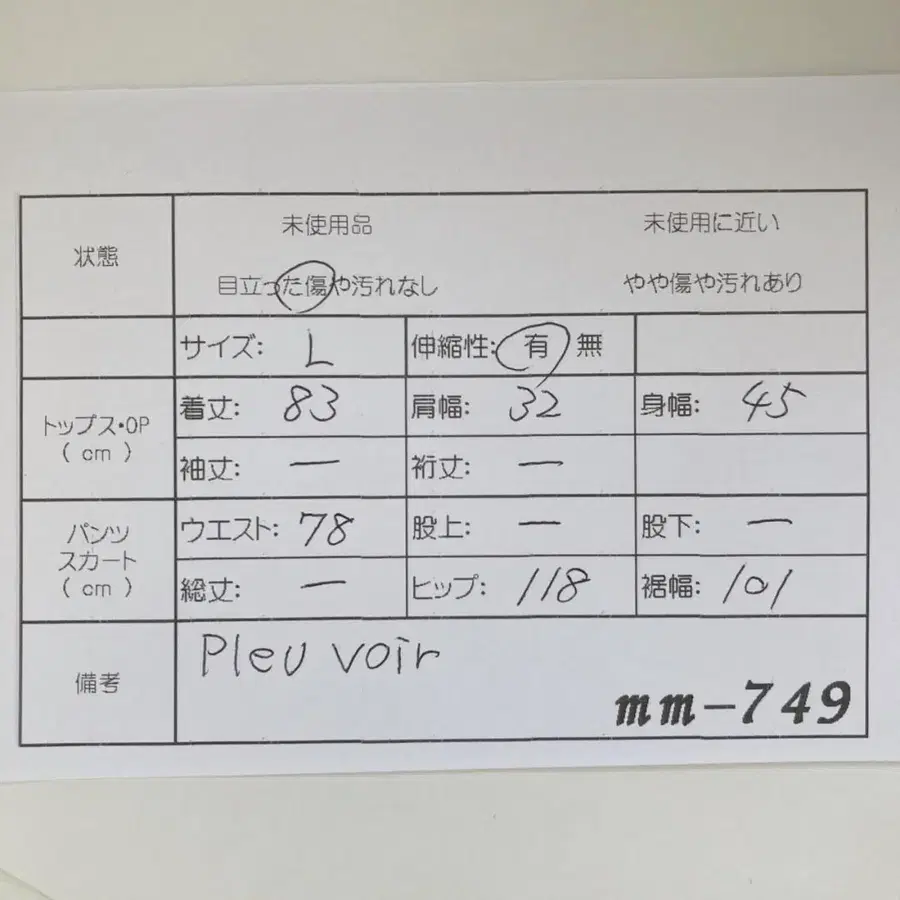 状態
未使用品 未使用に近い
目立った傷や汚れなし やや傷や汚れあり
サイズ: L 伸縮性: 有 無
トップス・OP
(cm)
着丈: 83 肩幅: 32 身幅: 45
袖丈: — 裄丈: —
パンツ
スカート
(cm)
ウエスト: 78 股上: — 股下: —
総丈: — ヒップ: 118 裾幅: 101
備考
Pleu voir
mm-749